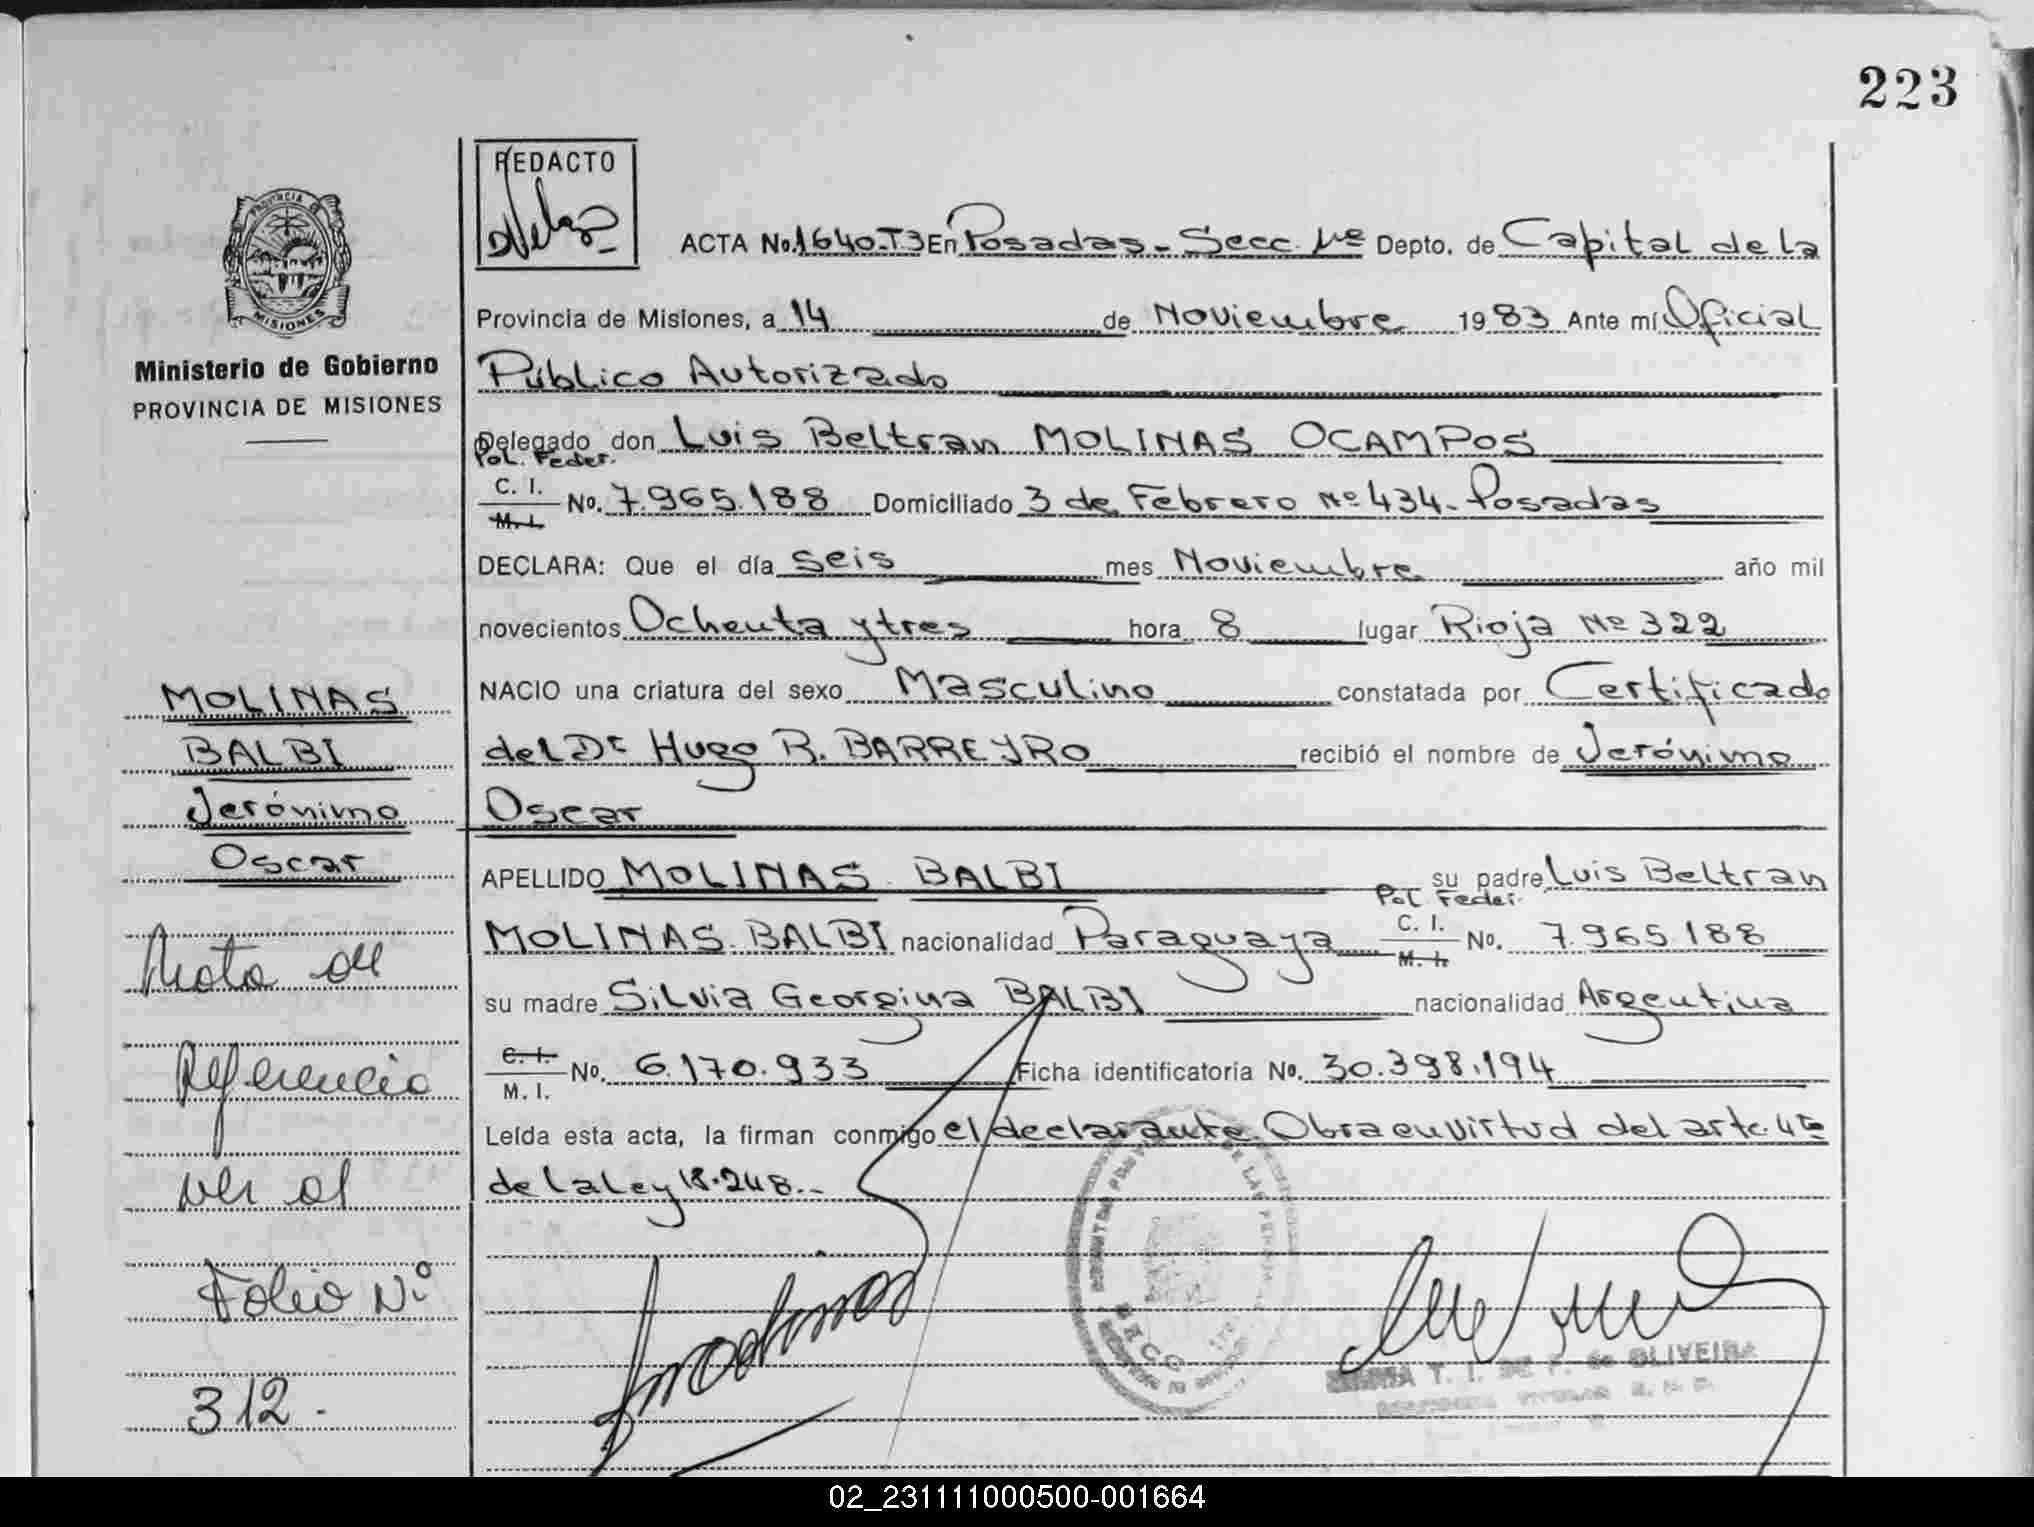 223
REDACTO
PROVINCIA DE
MISIONES
Ministerio de Gobierno
PROVINCIA DE MISIONES
ACTA No. 1640-T3 En Posadas - Secc. 1ra Depto. de Capital de la
Provincia de Misiones, a 14 de Noviembre 1983 Ante mí Oficial
Público Autorizado
Delegado don Luis Beltran MOLINAS OCAMPOS
Pol. Feder.
C. I.
M. I. No. 7.965.188 Domiciliado 3 de Febrero Nº 434- Posadas
DECLARA: Que el día Seis mes Noviembre año mil
novecientos Ochenta y tres hora 8 lugar Rioja Nº 322
NACIO una criatura del sexo Masculino constatada por Certificado
del Dr Hugo R. BARREYRO recibió el nombre de Jerónimo
Oscar
APELLIDO MOLINAS BALBI su padre Luis Beltran
Pol Feder.
MOLINAS BALBI nacionalidad Paraguaya C. I. M. I. No. 7.965.188
su madre Silvia Georgina BALBI nacionalidad Argentina
C. I.
M. I. No. 6.170.933 Ficha identificatoria No. 30.398.194
Leída esta acta, la firman conmigo el declarante. Obra en virtud del artc. 4to
de la Ley 18.248.-
MOLINAS
BALBI
Jerónimo
Oscar
Nota de
Referencia
ver al
Folio Nº
312.
T. I. DE F. de OLIVEIRA
02_231111000500-001664